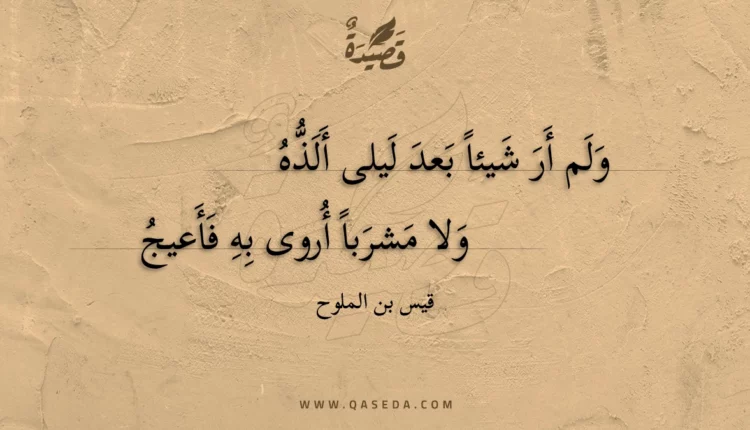 قَصِيْدَةٌ
وَلَم أَرَ شَيئاً بَعدَ لَيلى أَلَذُّهُ
وَلا مَشرَباً أُروى بِهِ فَأَعيجُ
قيس بن الملوح
WWW.QASEDA.COM